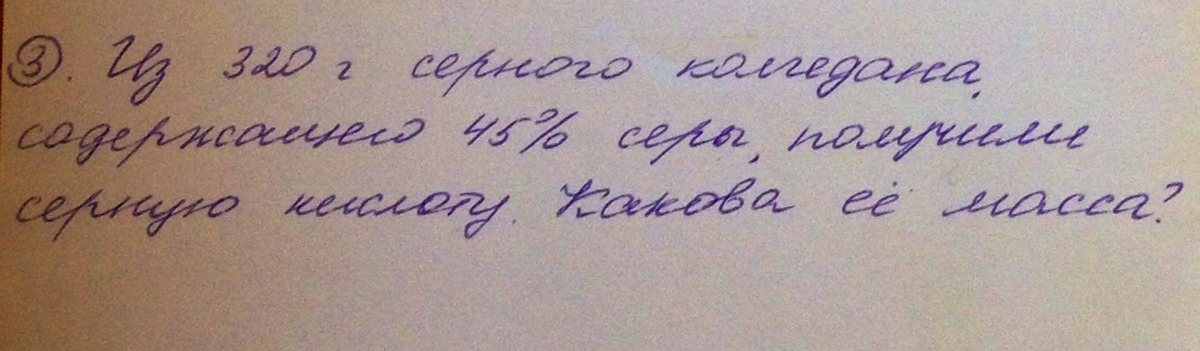 ③. Из 320 г серного колчедана,
содержащего 45% серы, получили
серную кислоту. Какова её масса?